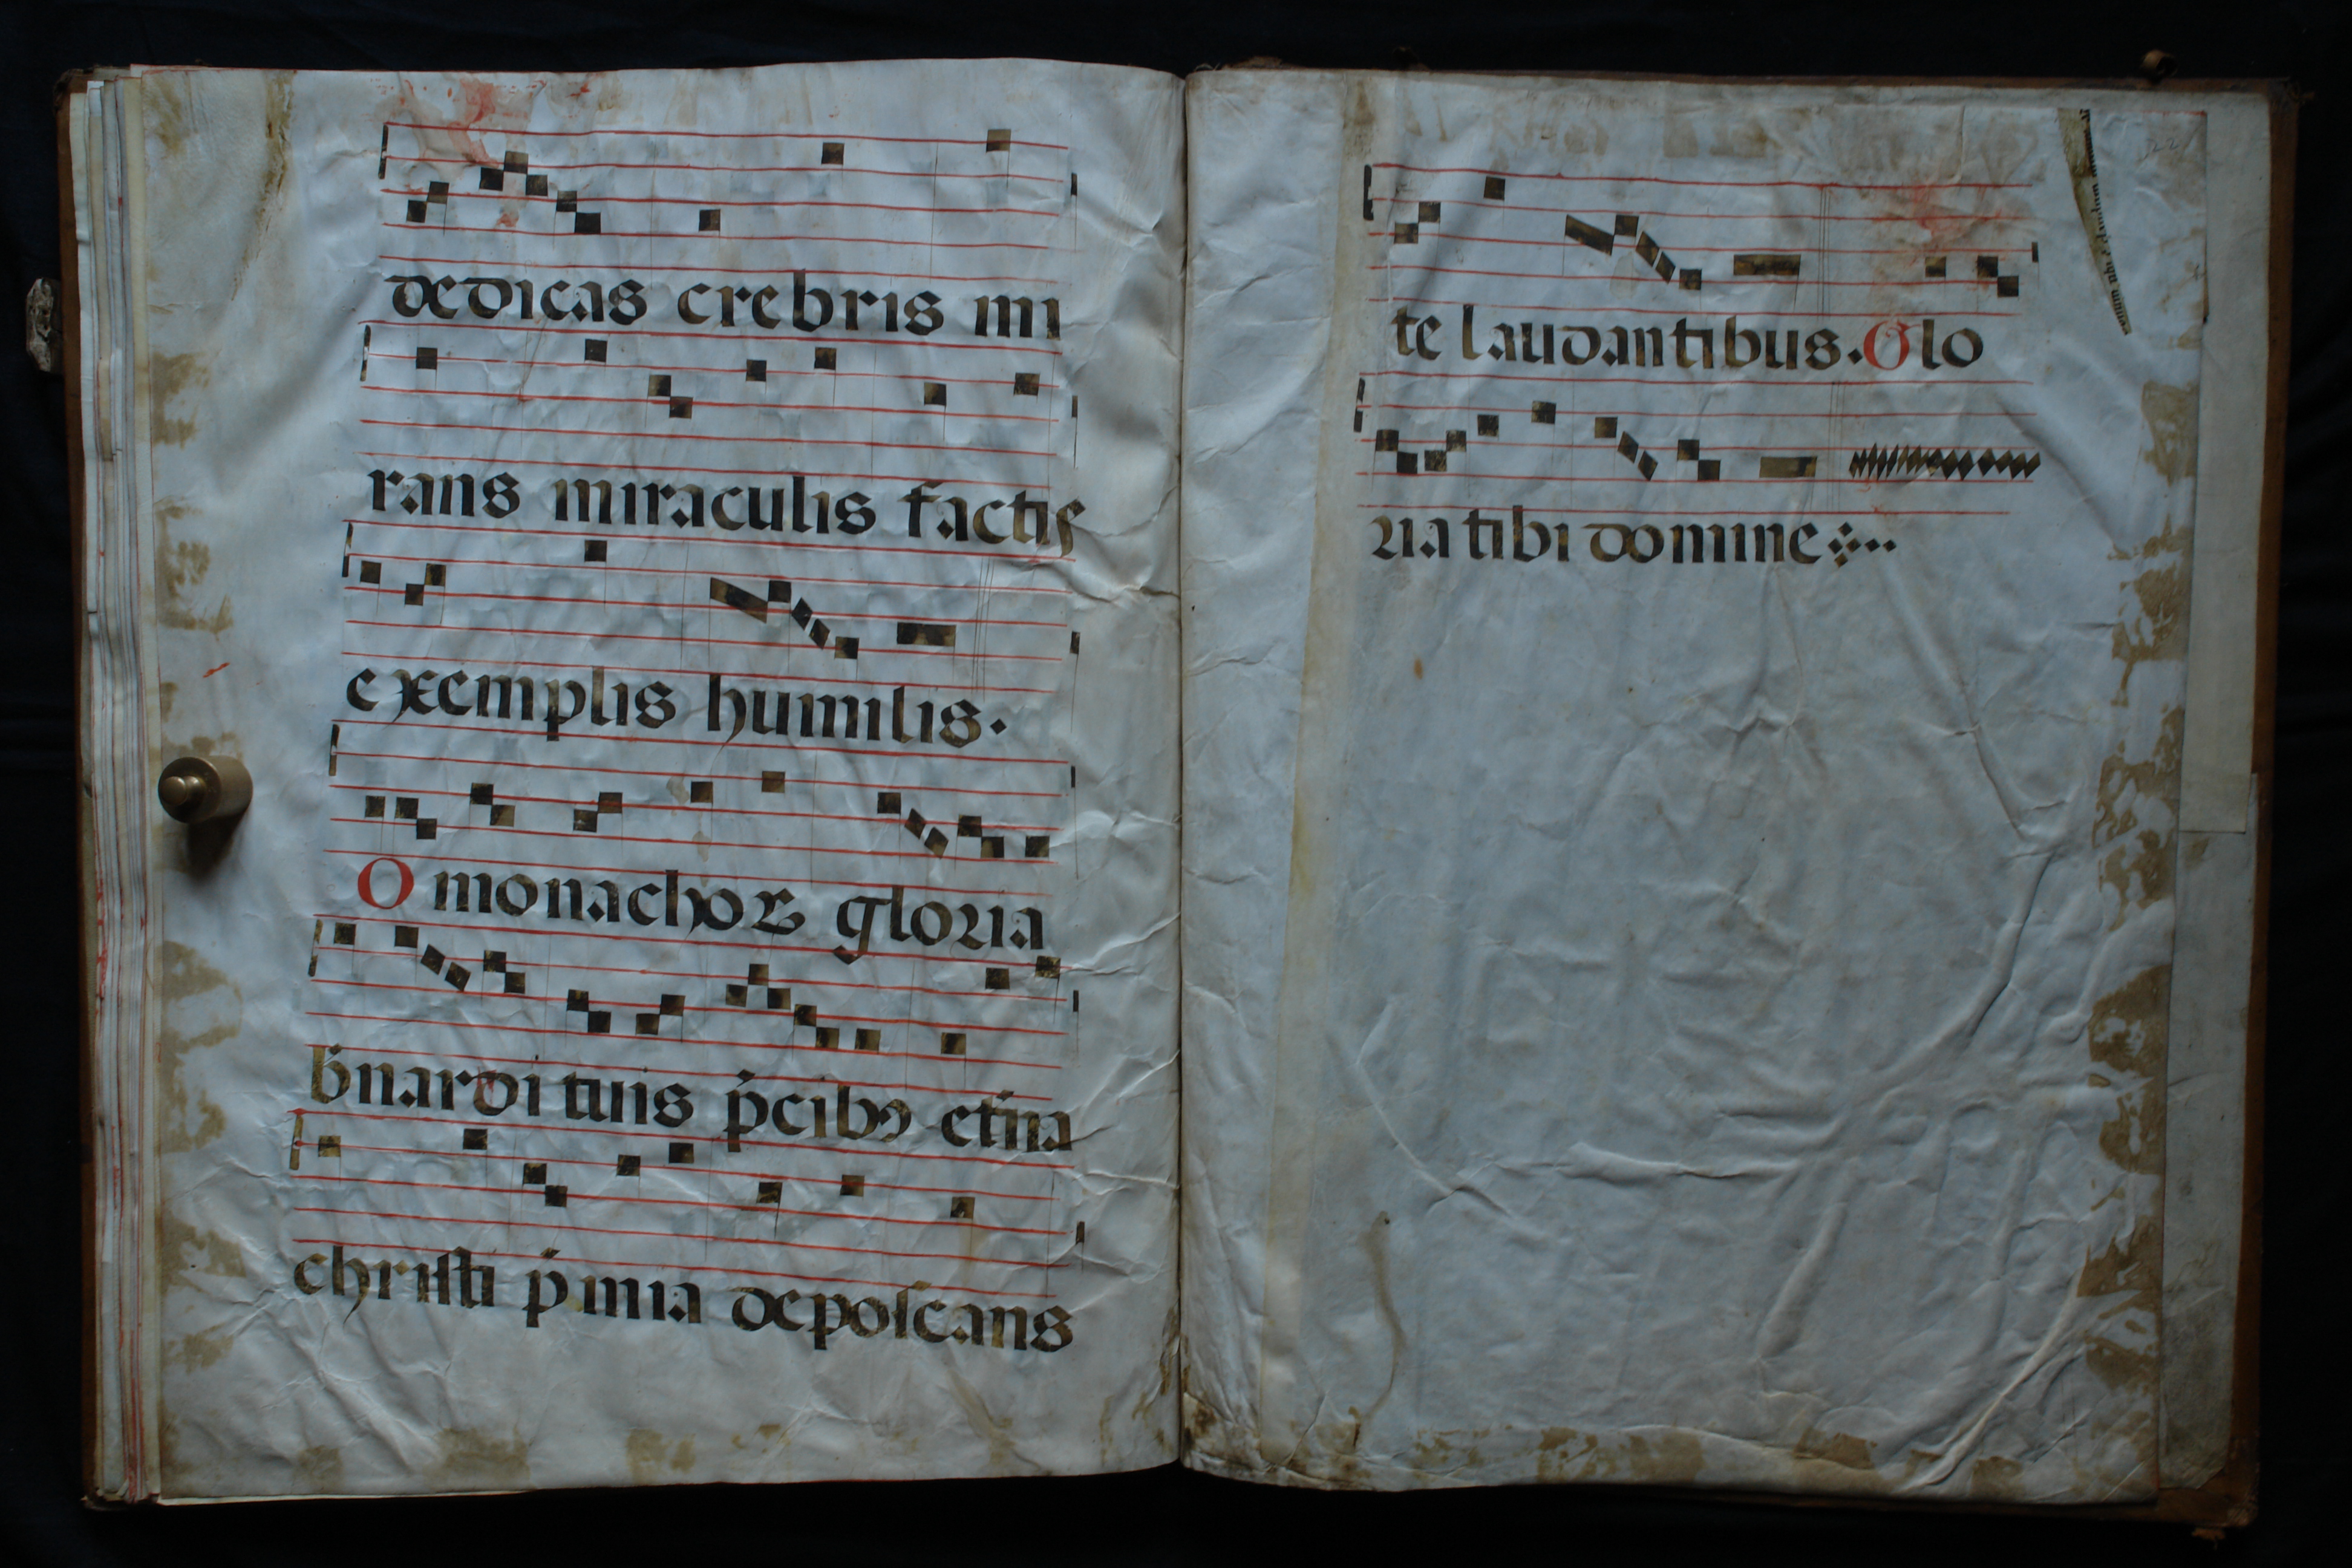 dedicas crebris mi
rans miraculis factis
exemplis humilis.
O monachoꝝ gloria
b̄nardi tuis p̄cibꝯ et̄na
christi p̄mia deposcans
te laudantibus. Glo
ria tibi domine
22